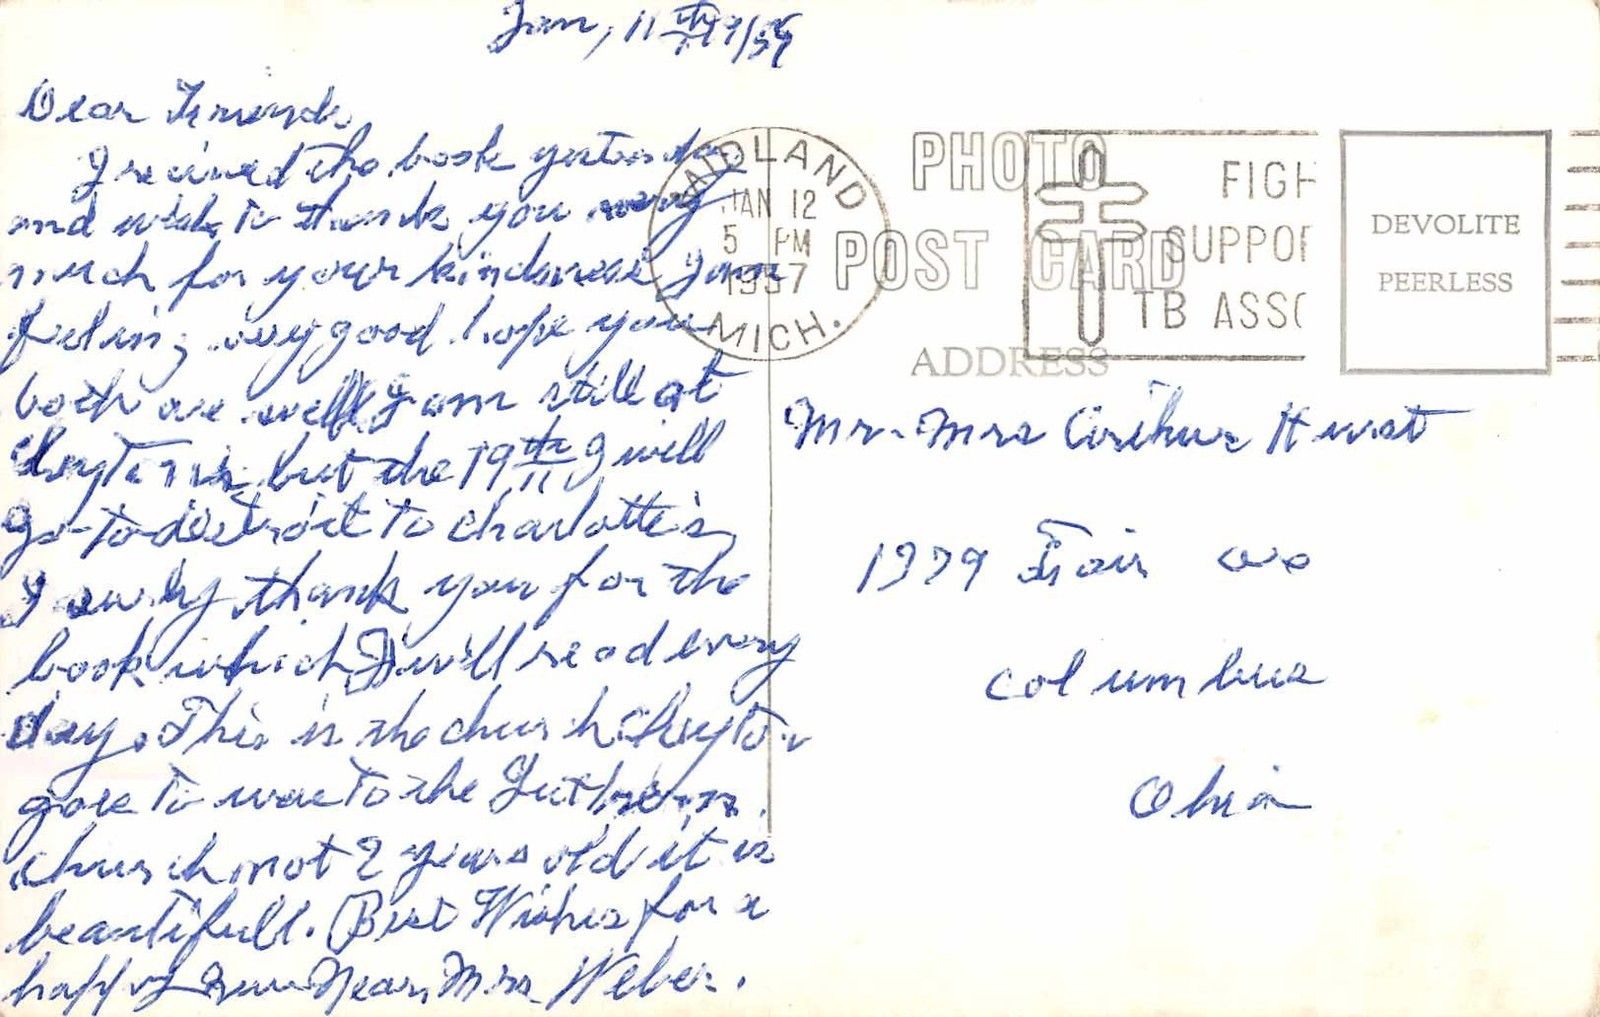 Jan, 11th
Dear Friends,
I received the book yesterday
and wish to thank you very
much for your kindness I am
feeling very good hope you
both are well I am still at
Clayton's but the 19th I will
go-to-detroit to Charlotte's
I surely thank you for the
book which I will read every
day. This is the church Clayton
goes to was to the Lutheran
church not 2 years old it is
beautifull. Best Wishes for a
happy New Year, Mrs. Weber.
MIDLAND
JAN 12
5 PM
1957
MICH.
PHOTO
POST CARD
ADDRESS
FIGH
SUPPOR
TB ASSO
DEVOLITE
PEERLESS
Mr-Mrs Arthur Hurst
1979 Fair ave
Columbus
Ohio